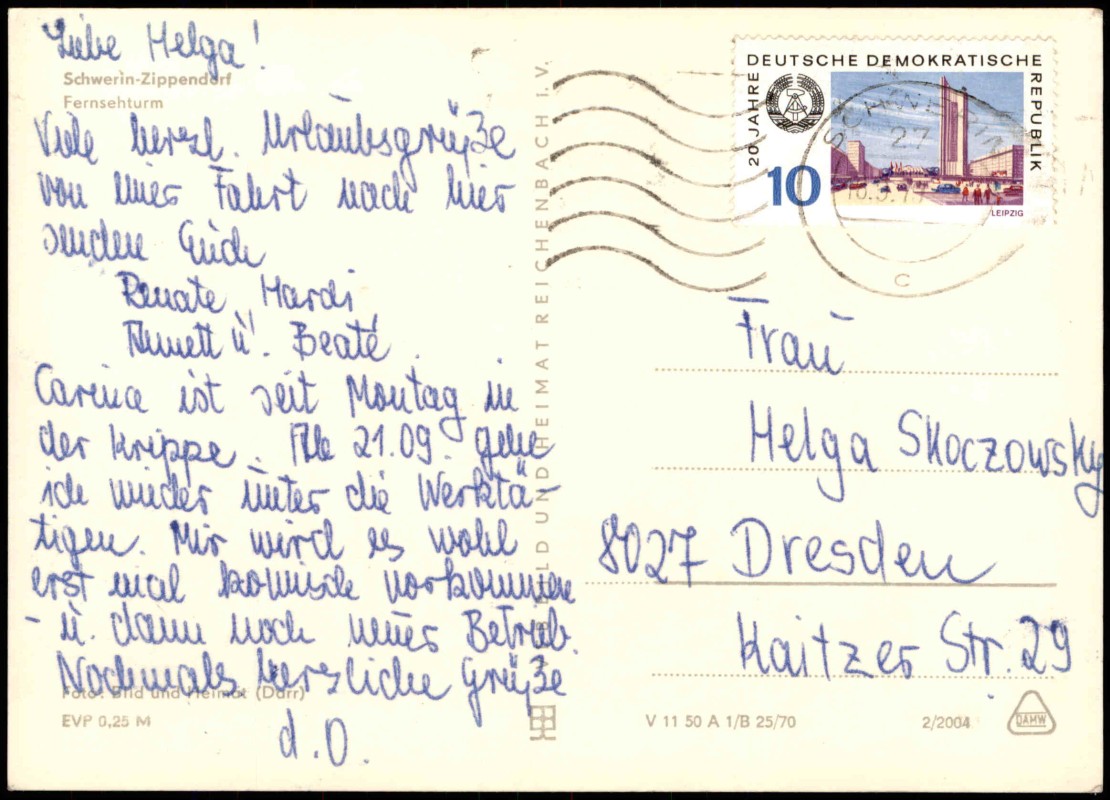 Liebe Helga!
Schwerin-Zippendorf
Fernsehturm
Viele herzl. Urlaubsgrüße
von einer Fahrt nach hier
senden Euch
Renate, Hardi,
Annett u. Beate.
Carina ist seit Montag in
der Krippe. Ab 21.09. gehe
ich wieder unter die Werktä-
tigen. Mir wird es wohl
erst mal komisch vorkommen
- u. dann noch neuer Betrieb.
Nochmals herzliche Grüße
d.O.
Foto: Bild und Heimat (Darr)
EVP 0,25 M
BILD UND HEIMAT REICHENBACH I. V.
DEUTSCHE DEMOKRATISCHE
REPUBLIK
20 JAHRE
10
LEIPZIG
SCHWERIN
27
c
Frau
Helga Skoczowsky
8027 Dresden
Kaitzer Str. 29
V 11 50 A 1/B 25/70
2/2004
DAMW